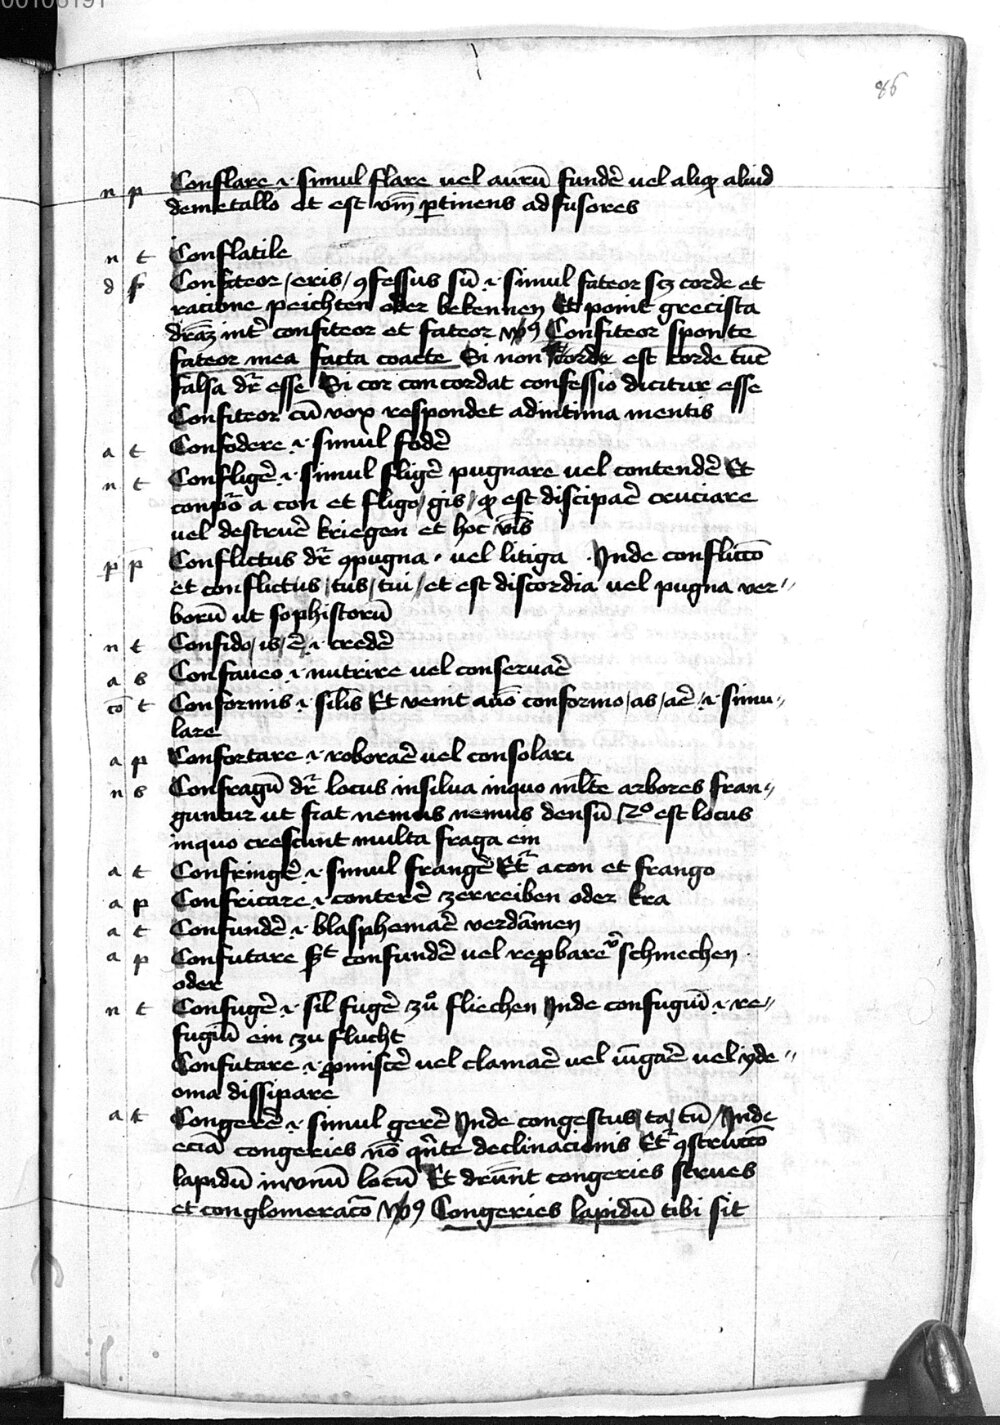 86
n p Conflare .i. simul flare uel aurū fundē uel aliq aliud
de metallo et est vm̄ ptinens ad fusores
n t Conflatile
d f Confiteor / eris / ꝯfessus sū .i. simul fateor sꝫ corde et
racione peichten oder bekennen Et ponit grecista
drāꝫ int confiteor et fateor vꝰ Confiteor sponte
fateor mea facta coacte Si non corde est corde tuē
falsa dr esse Si cor concordat confessio dicitur esse
Confiteor cū vox respondet ad intima mentis
a t Confodere .i. simul fodē
n t Confligē .i. simul fligē pugnare uel contendē Et
conpōr a con et fligo / gis / qꝫ est discipaē cruciare
uel destruē kriegen et hoc vīs
p p Conflictus dr ꝯpugna . uel litiga . Inde conflictō
et conflictus / tus / tui / et est discordia uel pugna ver〃
borū ut sophistorū
n t Confido / is / ē .i. credē
a s Confaueo .i. nutrire uel conseruaē
cō t Conformis .i. silīs Et venit auō conformo / as / aē .i. simu〃
lare
a p Confortare .i. roboraē uel consolari
n s Confragū dr locus in silua in quo mlte arbores fran〃
guntur ut fiat nemus nemus densū 2º est locus
in quo crescunt multa fraga ein
a t Confringē .i. simul frangē Et a con et frango
a p Confricare .i. conterē zerreiben oder kra
a t Confundē .i. blasphemaē verdāmen
a p Confutare st confundē uel reꝓbare schmechen
oder
n t Confugē .i. sil fugē zů fliechen Inde confugiū .i. re〃
fugiū ein zu flucht
Confutare .i. ꝓmiscē uel clamaē uel iūgaē uel yde〃
oma dissipare
a t Congerē .i. simul gerē Inde congestus / ta / tū / Inde
eciā congeries nō qnte declinacionis Et ꝯstructō
lapidū in vnū locū Et drunt congeries strues
et conglomeratō vꝰ Congeries lapidū tibi sit